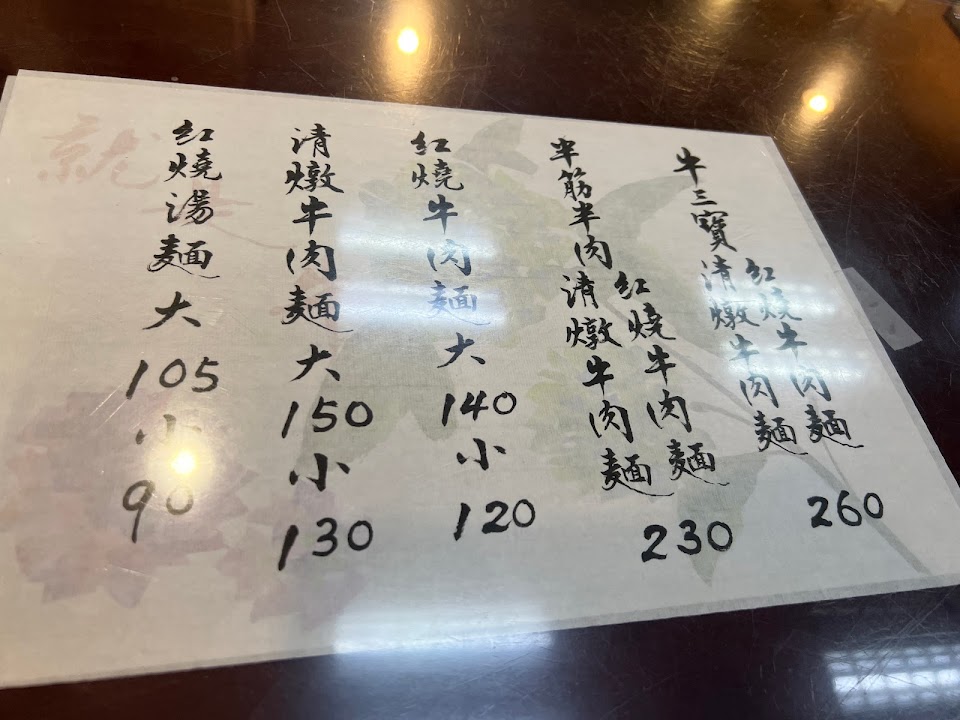 牛三寶
紅燒牛肉麵
清燉牛肉麵
260
半筋半肉
紅燒牛肉麵
清燉牛肉麵
230
紅燒牛肉麵 大 140 小 120
清燉牛肉麵 大 150 小 130
紅燒湯麵 大 105 小 90